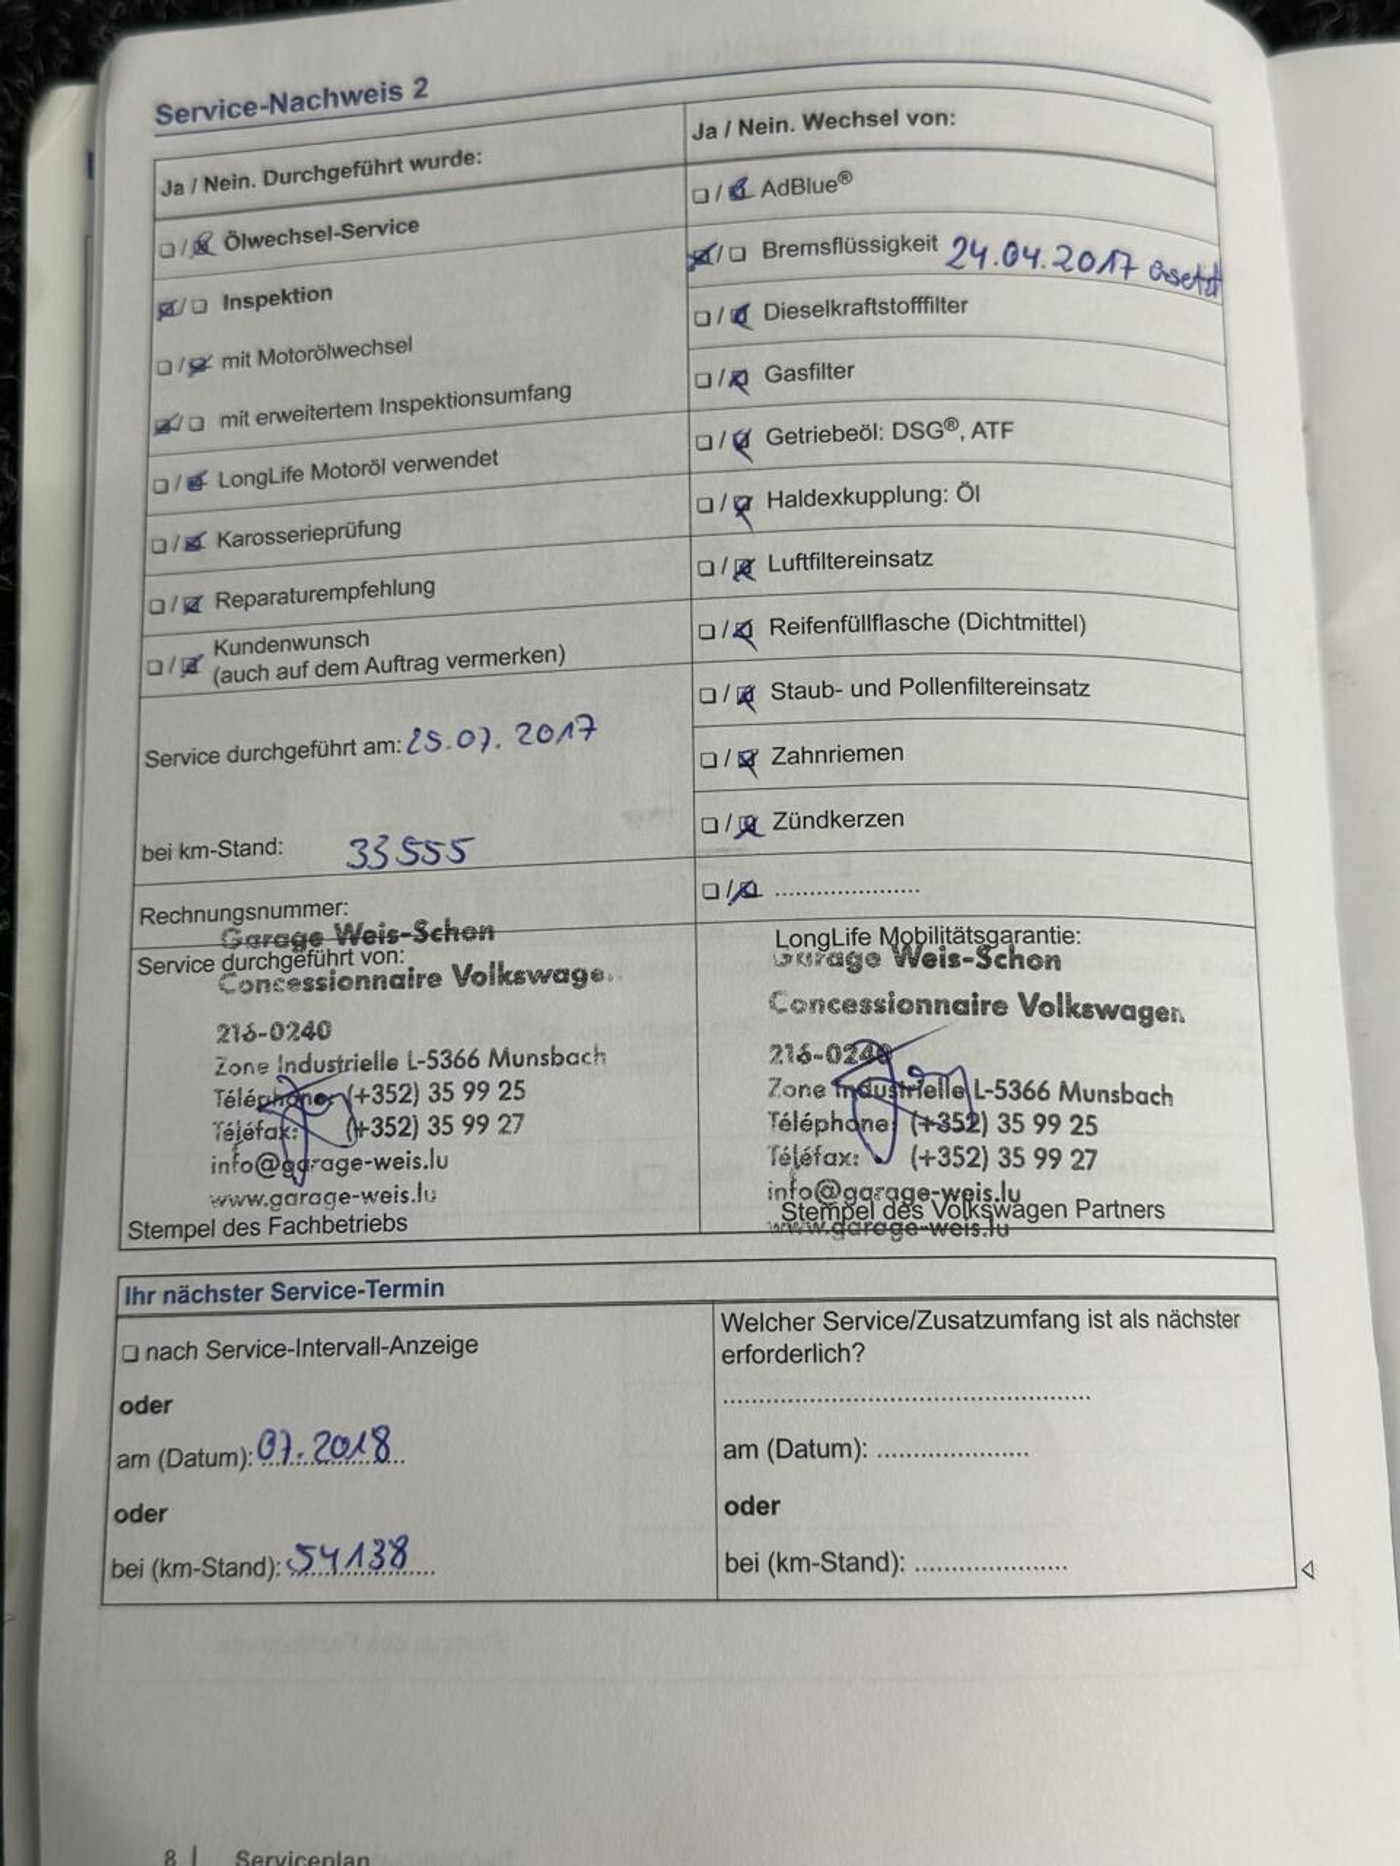 Service-Nachweis 2
Ja / Nein. Durchgeführt wurde:
☐ / ☒ Ölwechsel-Service
☒ / ☐ Inspektion
☐ / ☒ mit Motorölwechsel
☒ / ☐ mit erweitertem Inspektionsumfang
☐ / ☒ LongLife Motoröl verwendet
☐ / ☒ Karosserieprüfung
☐ / ☒ Reparaturempfehlung
☐ / ☒ Kundenwunsch
(auch auf dem Auftrag vermerken)
Service durchgeführt am: 25.07.2017
bei km-Stand: 33555
Rechnungsnummer:
Garage Weis-Schon
Service durchgeführt von:
Concessionnaire Volkswage
216-0240
Zone Industrielle L-5366 Munsbach
Téléphone: (+352) 35 99 25
Téléfax: (+352) 35 99 27
info@garage-weis.lu
www.garage-weis.lu
Stempel des Fachbetriebs
Ja / Nein. Wechsel von:
☐ / ☒ AdBlue®
☒ / ☐ Bremsflüssigkeit 24.04.2017 ersetzt
☐ / ☒ Dieselkraftstofffilter
☐ / ☒ Gasfilter
☐ / ☒ Getriebeöl: DSG®, ATF
☐ / ☒ Haldexkupplung: Öl
☐ / ☒ Luftfiltereinsatz
☐ / ☒ Reifenfüllflasche (Dichtmittel)
☐ / ☒ Staub- und Pollenfiltereinsatz
☐ / ☒ Zahnriemen
☐ / ☒ Zündkerzen
☐ / ☒ .....................
LongLife Mobilitätsgarantie:
Garage Weis-Schon
Concessionnaire Volkswagen
216-0240
Zone Industrielle L-5366 Munsbach
Téléphone: (+352) 35 99 25
Téléfax: (+352) 35 99 27
info@garage-weis.lu
Stempel des Volkswagen Partners
www.garage-weis.lu
Ihr nächster Service-Termin
☐ nach Service-Intervall-Anzeige
oder
am (Datum): 07.2018
oder
bei (km-Stand): 54138
Welcher Service/Zusatzumfang ist als nächster
erforderlich?
.....................
am (Datum): .....................
oder
bei (km-Stand): .....................
8 | Serviceplan